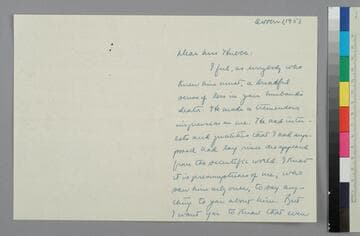 Dear Mrs
I feel, as everybody who
knew him must, a dreadful
sense of loss in your husband's
death. He made a tremendous
impression on me. He had inter-
ests and qualities that I had sup-
posed had long since disappeared
from the scientific world. I know
it is presumptuous of me, who
saw him only once, to say any-
thing to you about him. But
I want you to know that even